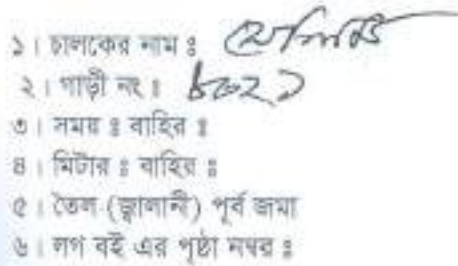 ১। চালকের নাম ঃ সেলিম
২। গাড়ী নং ঃ ৮০২১
৩। সময় ঃ বাহির ঃ
৪। মিটার ঃ বাহির ঃ
৫। তৈল (জ্বালানী) পূর্ব জমা
৬। লগ বই এর পৃষ্ঠা নম্বর ঃ